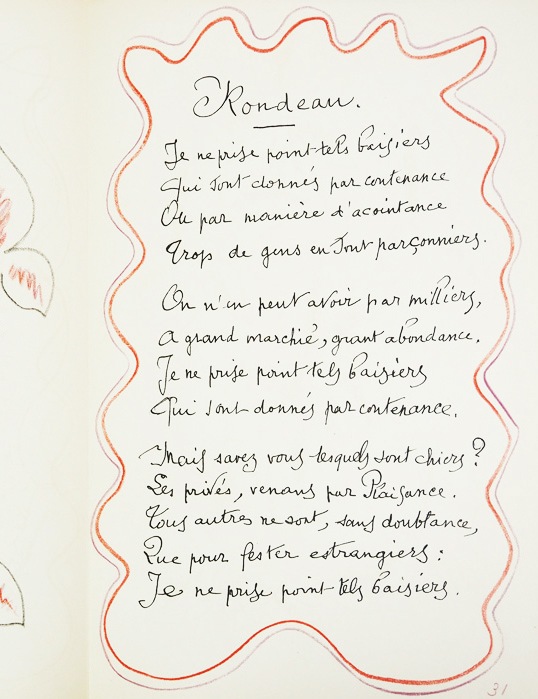 Rondeau.
Je ne prise point tels baisiers
Qui sont donnés par contenance
Ou par manière d'acointance
Trop de gens en sont parçonniers.
On n'en peut avoir par milliers,
A grand marchié, grant abondance.
Je ne prise point tels baisiers
Qui sont donnés par contenance.
Mais savez vous lesquels sont chiers?
Les privés, venans par Plaisance.
Tous autres ne sont, sans doubtance,
Que pour fester estrangiers:
Je ne prise point tels baisiers.
31